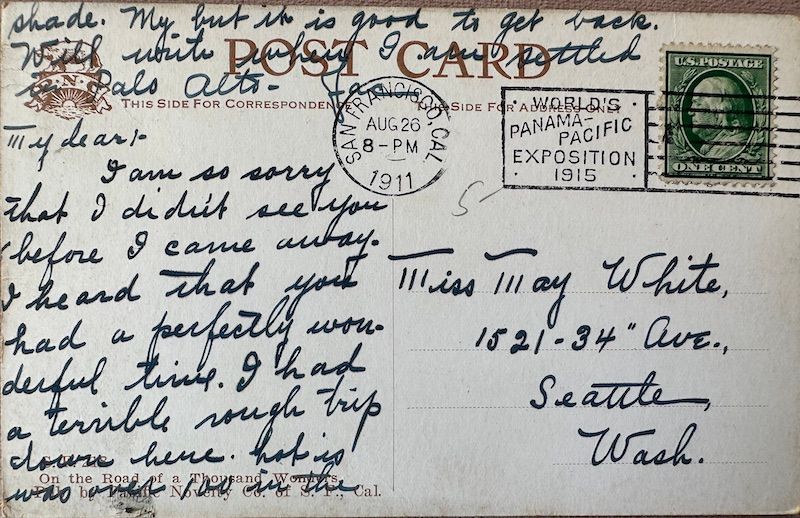 shade. My but it is good to get back.
Will write when I am settled
in Palo Alto-
POST CARD
P.N.
THIS SIDE FOR CORRESPONDENCE
THE SIDE FOR ADDRESS ONLY
SAN FRANCISCO, CAL.
AUG 26
8-PM
1911
WORLD'S
PANAMA-
PACIFIC
EXPOSITION
1915
U.S. POSTAGE
ONE CENT
5-
My dear:-
I am so sorry
that I didn't see you
before I came away.
I heard that you
had a perfectly won-
derful time. I had
a terrible rough trip
down here. hot is
was over 100 in the
On the Road of a Thousand Wonders.
Pub. by Pacific Novelty Co. of S. F., Cal.
Miss May White,
1521-34" Ave.,
Seattle,
Wash.